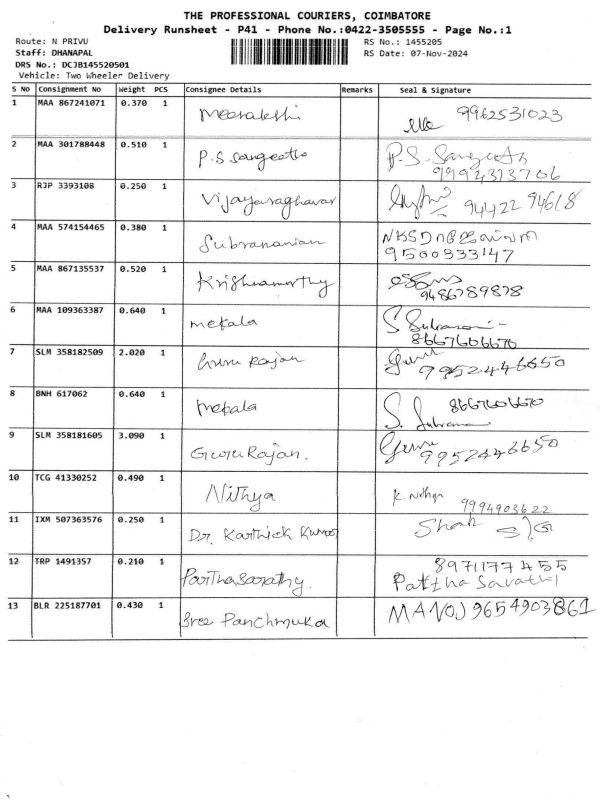 THE PROFESSIONAL COURIERS, COIMBATORE
Delivery Runsheet - P41 - Phone No.:0422-3505555 - Page No.:1
Route: N PRIVU RS No.: 1455205
Staff: DHANAPAL RS Date: 07-Nov-2024
DRS No.: DCJB145520501
Vehicle: Two Wheeler Delivery
S No Consignment No Weight PCS Consignee Details Remarks Seal & Signature
1 MAA 867241071 0.370 1 Meenakshi 9962531023
2 MAA 301788448 0.510 1 P.S Sangeetha P.S. Sangeeth
9994313706
3 RJP 3393108 0.250 1 Vijayaraghavan 94422 94618
4 MAA 574154465 0.380 1 Subramanian
9500933147
5 MAA 867135537 0.520 1 Krishnamorthy
9486789878
6 MAA 109363387 0.640 1 mekala S Subramani
8667606670
7 SLM 358182509 2.020 1 Guru Rajan Guru
9952446650
8 BNH 617062 0.640 1 Mekala 8667606670
S. Subrama
9 SLM 358181605 3.090 1 Guru Rajan. Guru
9952446650
10 TCG 41330252 0.490 1 Nithya K Nithya
9994903622
11 IXM 507363576 0.250 1 Dr. Karthick Kumar
12 TRP 1491357 0.210 1 ParthaSarathy. 8971177455
Parthasarathi
13 BLR 225187701 0.430 1 Sree Panchmuka MANOJ 9654903861